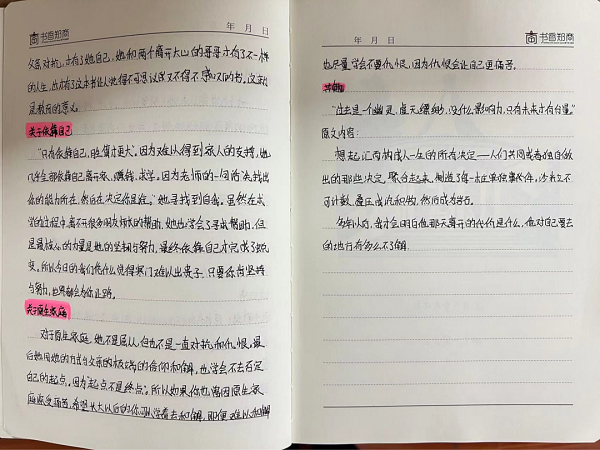 书香知商
年 月 日
父亲对抗,才有了她自己,她和两个离开大山的哥哥才有了不一样
的人生,也才有了这本书让人觉得不可思议又不得不感叹的书。这就
是教育的意义。
关于依靠自己
"只有依靠自己,胜算才更大"。因为难以得到家人的支持,她
几乎全部依靠自己离开家、赚钱、求学。因为老师的一句话"先找出
你的能力所在,然后在决定你是谁。"她寻找到自我。虽然在求
学的过程中离不开很多朋友师长的帮助,她也学会了寻求帮助,但
是最核心的力量是她的坚韧与努力,最终依靠自己才完成了蜕
变。所以今日的我们凭什么觉得寒门难以出贵子,只要你肯坚持
与努力,世界都会为你让路。
关于原生家庭
对于原生家庭,她不是屈从,但也不是一直对抗和仇恨,最
后她用她的方式与父亲的极端的信仰和解,也学会不去否定
自己的起点。因为"起点不是终点"。所以如果你也曾因原生家
庭感受痛苦,希望长大以后的你可以学着去和解,即便难以和解
书香知商
年 月 日
也尽量学会不要仇恨,因为仇恨会让自己更痛苦。
"过去是一个幽灵,虚无缥缈,没什么影响力,只有未来才有分量。"
原文内容:
想起,汇而构成人一生的所有决定——人们共同或者独自做
出的那些决定,聚合起来,制造了每一桩单独事件,沙粒不
可计数,叠压成沉积物,然后成为岩石。
多年以后,我才会明白他那天离开的代价是什么,他对自己要去
的地方有多么不了解。